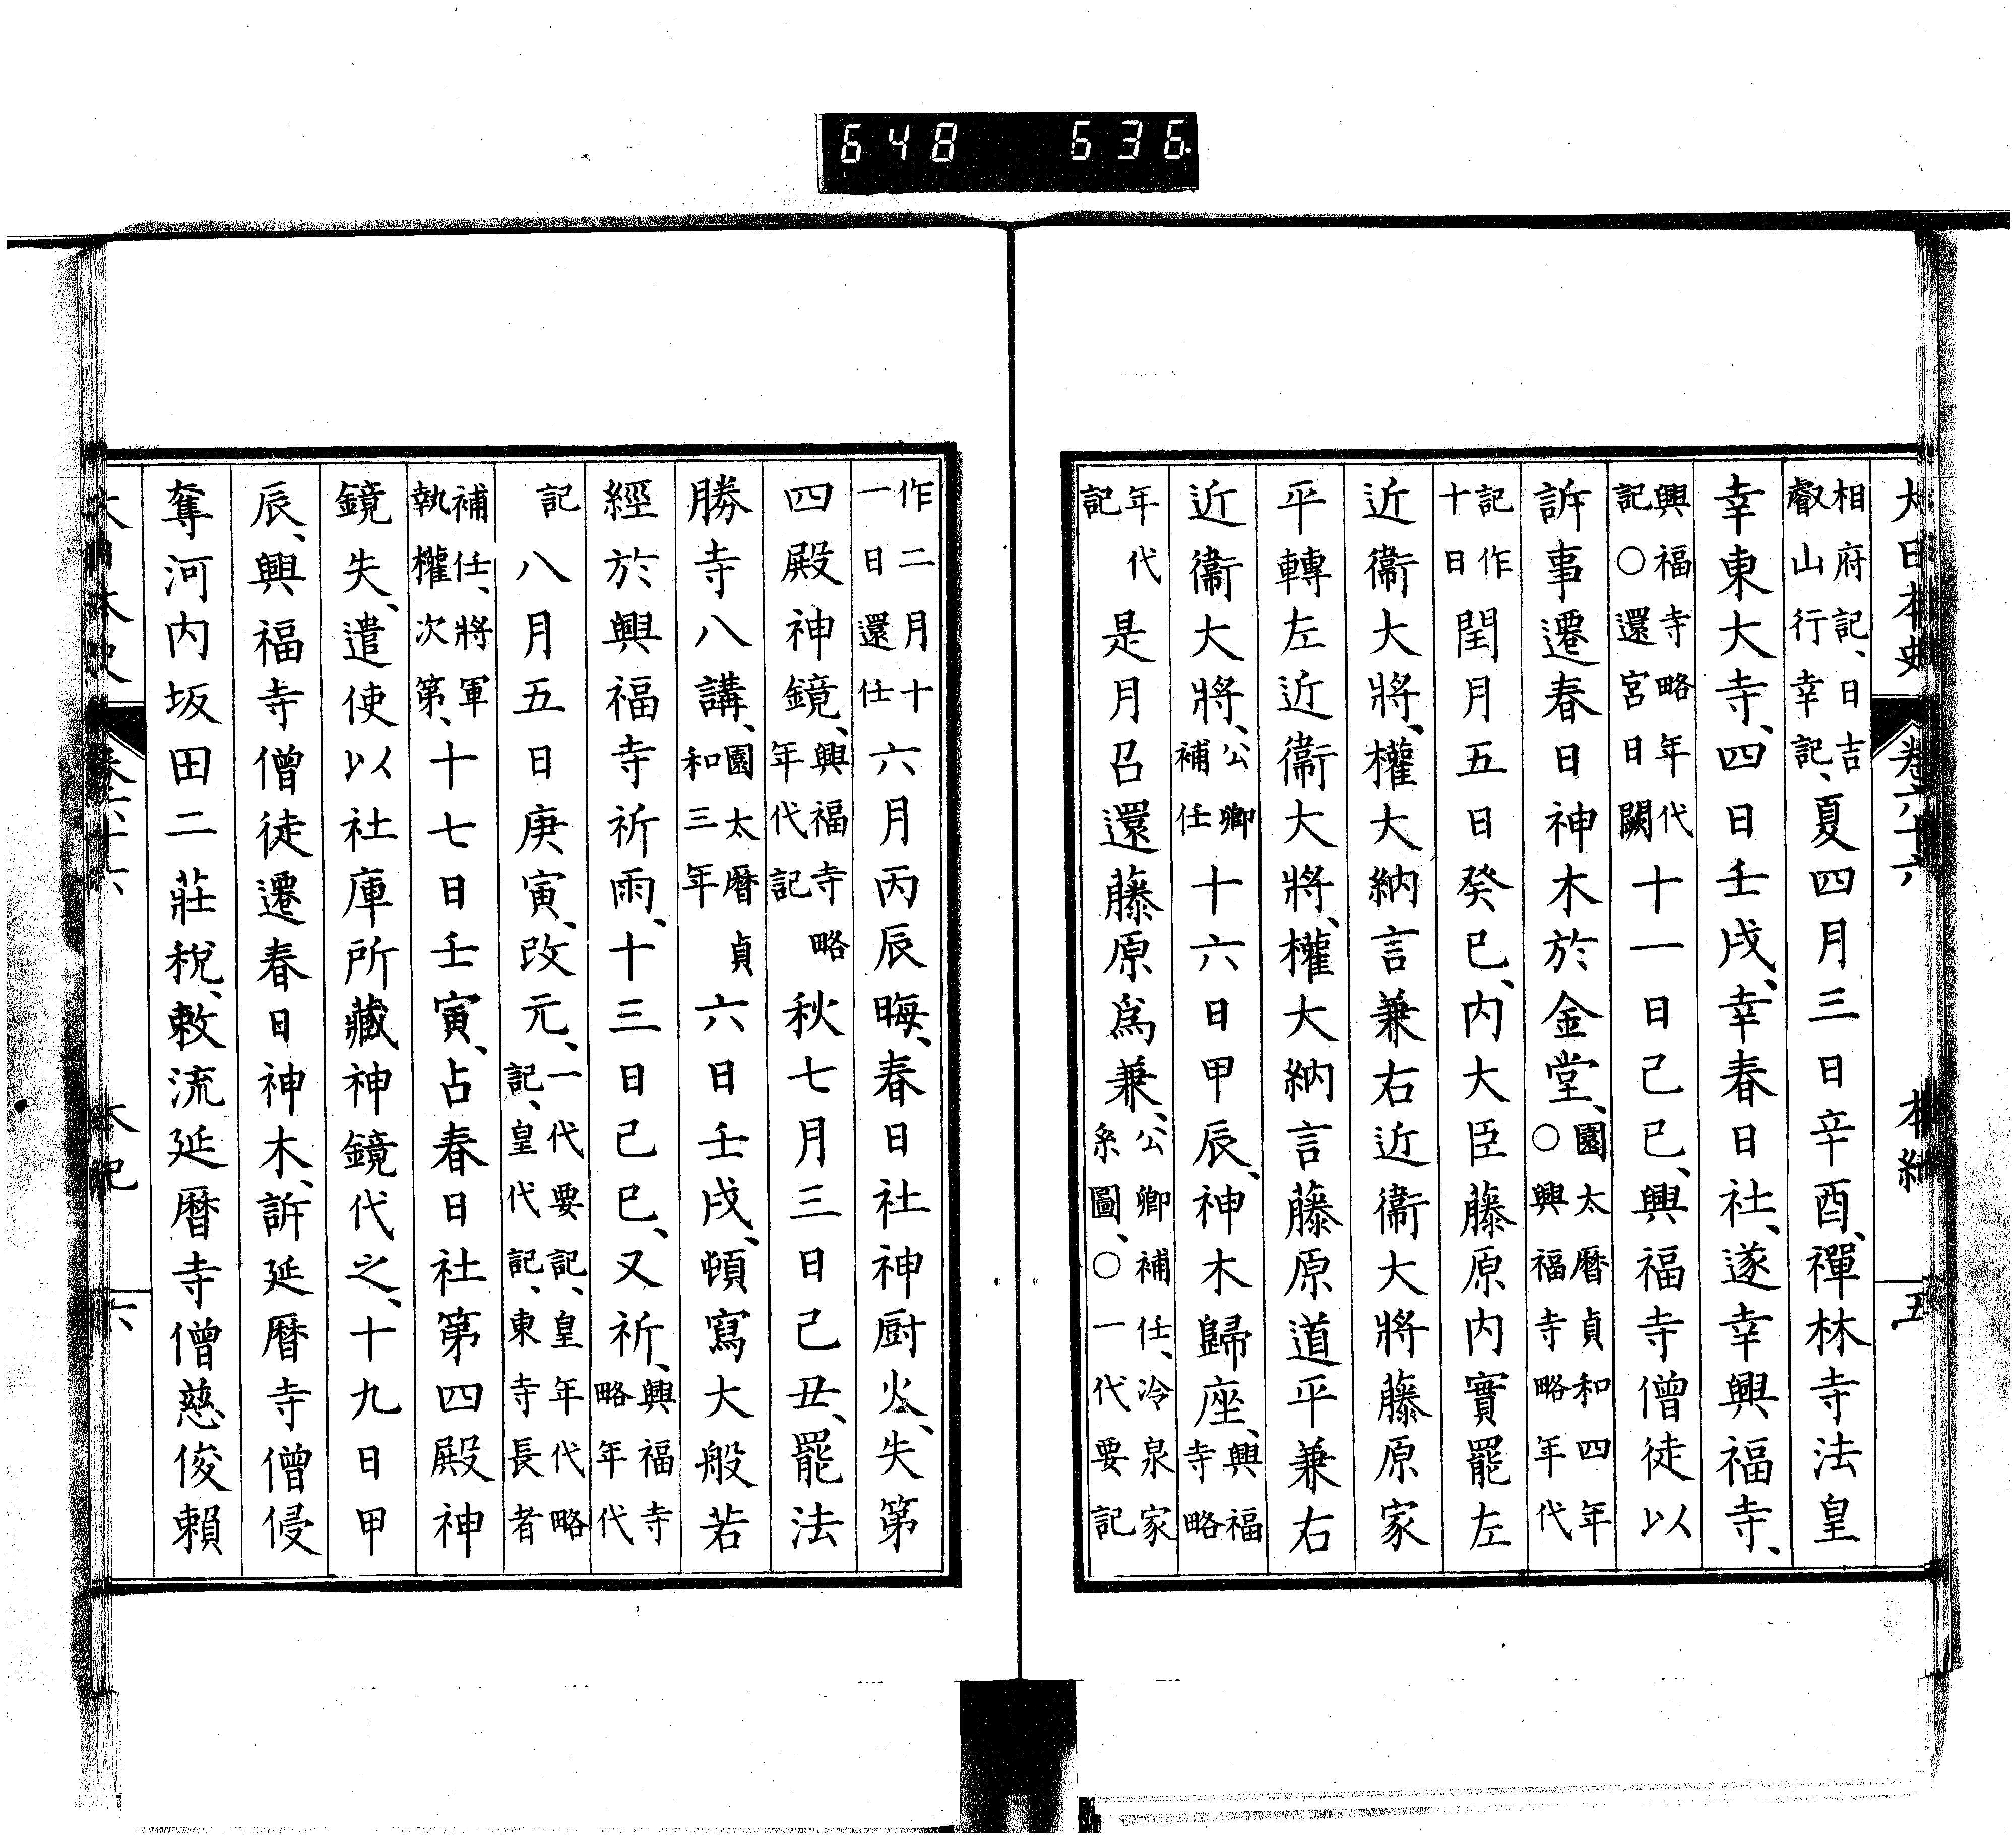 648 636
大日本史 卷六十六 本紀 五
相府記、日吉叡山行幸記、夏四月三日辛酉、禪林寺法皇
幸東大寺、四日壬戌、幸春日社、遂幸興福寺、
興福寺略年代記○還宮日闕十一日己巳、興福寺僧徒以
訴事遷春日神木於金堂、園太曆貞和四年○興福寺略年代
記作十日閏月五日癸巳、内大臣藤原内實罷左
近衞大將、權大納言兼右近衞大將藤原家
平轉左近衞大將、權大納言藤原道平兼右
近衞大將、公卿補任十六日甲辰、神木歸座、興福寺略
年代記是月召還藤原爲兼、公卿補任、冷泉家系圖、○一代要記
作二月十一日還任六月丙辰晦、春日社神厨火、失第
四殿神鏡、興福寺略年代記秋七月三日己丑、罷法
勝寺八講、園太曆貞和三年六日壬戌、頓寫大般若
經於興福寺祈雨、十三日己巳、又祈、興福寺略年代
記八月五日庚寅、改元、一代要記、皇年代略記、皇代記、東寺長者
補任、將軍執權次第、十七日壬寅、占春日社第四殿神
鏡失、遣使以社庫所藏神鏡代之、十九日甲
辰、興福寺僧徒遷春日神木、訴延曆寺僧侵
奪河内坂田二莊稅、敕流延曆寺僧慈俊賴
大日本史 卷六十六 本紀 六